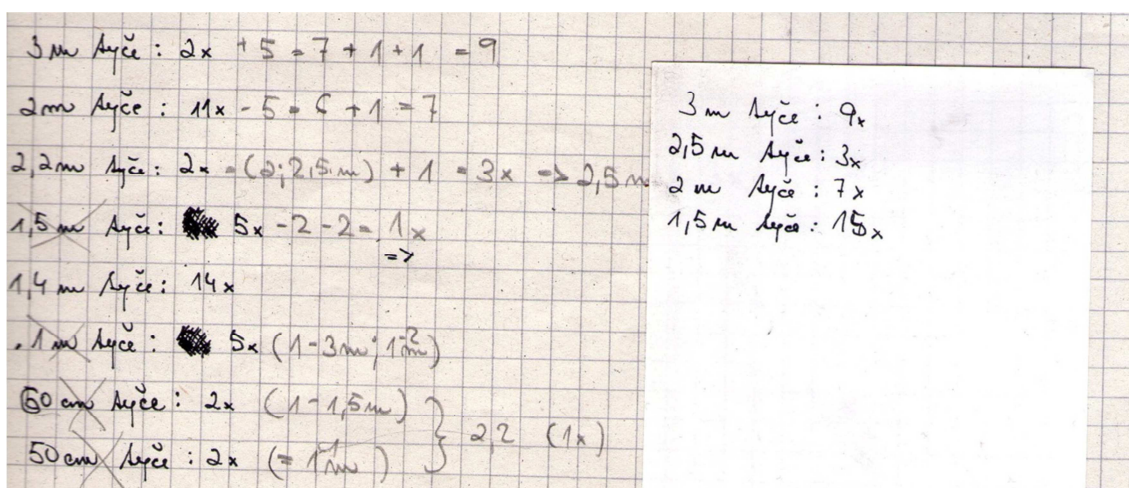 3m tyče : 2x + 5 = 7 + 1 + 1 = 9
2m tyče : 11x - 5 = 6 + 1 = 7
2,2m tyče : 2x = (2; 2,5m) + 1 = 3x => 2,5m
1,5m tyče : 5x - 2 - 2 = 1x
=>
1,4m tyče : 14x
1m tyče : 5x (1 - 3m; 1 - 2m)
60cm tyče : 2x (1 - 1,5m)
2,2 (1x)
50cm tyče : 2x (= 1 - 1m)
3m tyče : 9x
2,5m tyče : 3x
2m tyče : 7x
1,5m tyče : 15x